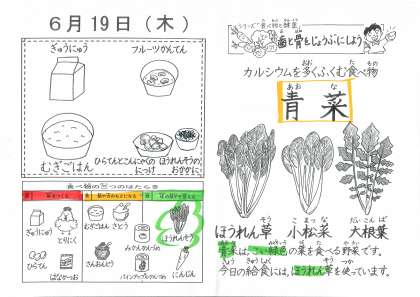 6月19日（木）
ぎゅうにゅう
フルーツかんてん
むぎごはん
ひらてんとこんにゃくの
につけ
ほうれんそうの
おかかに
食べ物の三つのはたらき
ぎゅうにゅう
とりにく
ひらてん
はなかつお
むぎごはん
さとう
さんおんとう
みかんかんづめ
パインアップルかんづめ
ほうれんそう
にんじん
シリーズ 食べ物と健康
歯と骨をじょうぶにしよう
カルシウムを多くふくむ食べ物
あお な
青菜
ほうれん草
小松菜
大根葉
青菜は、こい緑色の葉を食べる野菜です。
今日の給食には、ほうれん草を使っています。